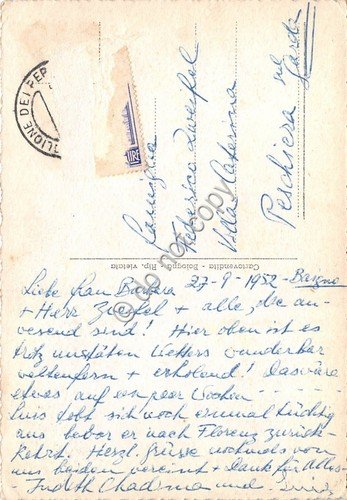 TIGLIONE DEI PEP
LIRE
Famiglia
Federico Zweifel
Villa Caterina
Peschiera del
Garda
Cartovendita - Bologna, Rip. vietata
do not copy
27-9-1952 - Barzno
Liebe Frau Barbara
+ Herr Zweifel + alle, die an-
wesend sind! Hier oben ist es
trotz unstäten Wetters wunderbar
weltenfern + erholend! Das wäre
etwas auf ein paar Wochen -
Luis tobt sich noch einmal tüchtig
aus bevor er nach Florenz zurück-
kehrt. Herzl. Grüsse nochmals von
uns beiden vereint + Dank für Alles -
Judith Chadima und Luis